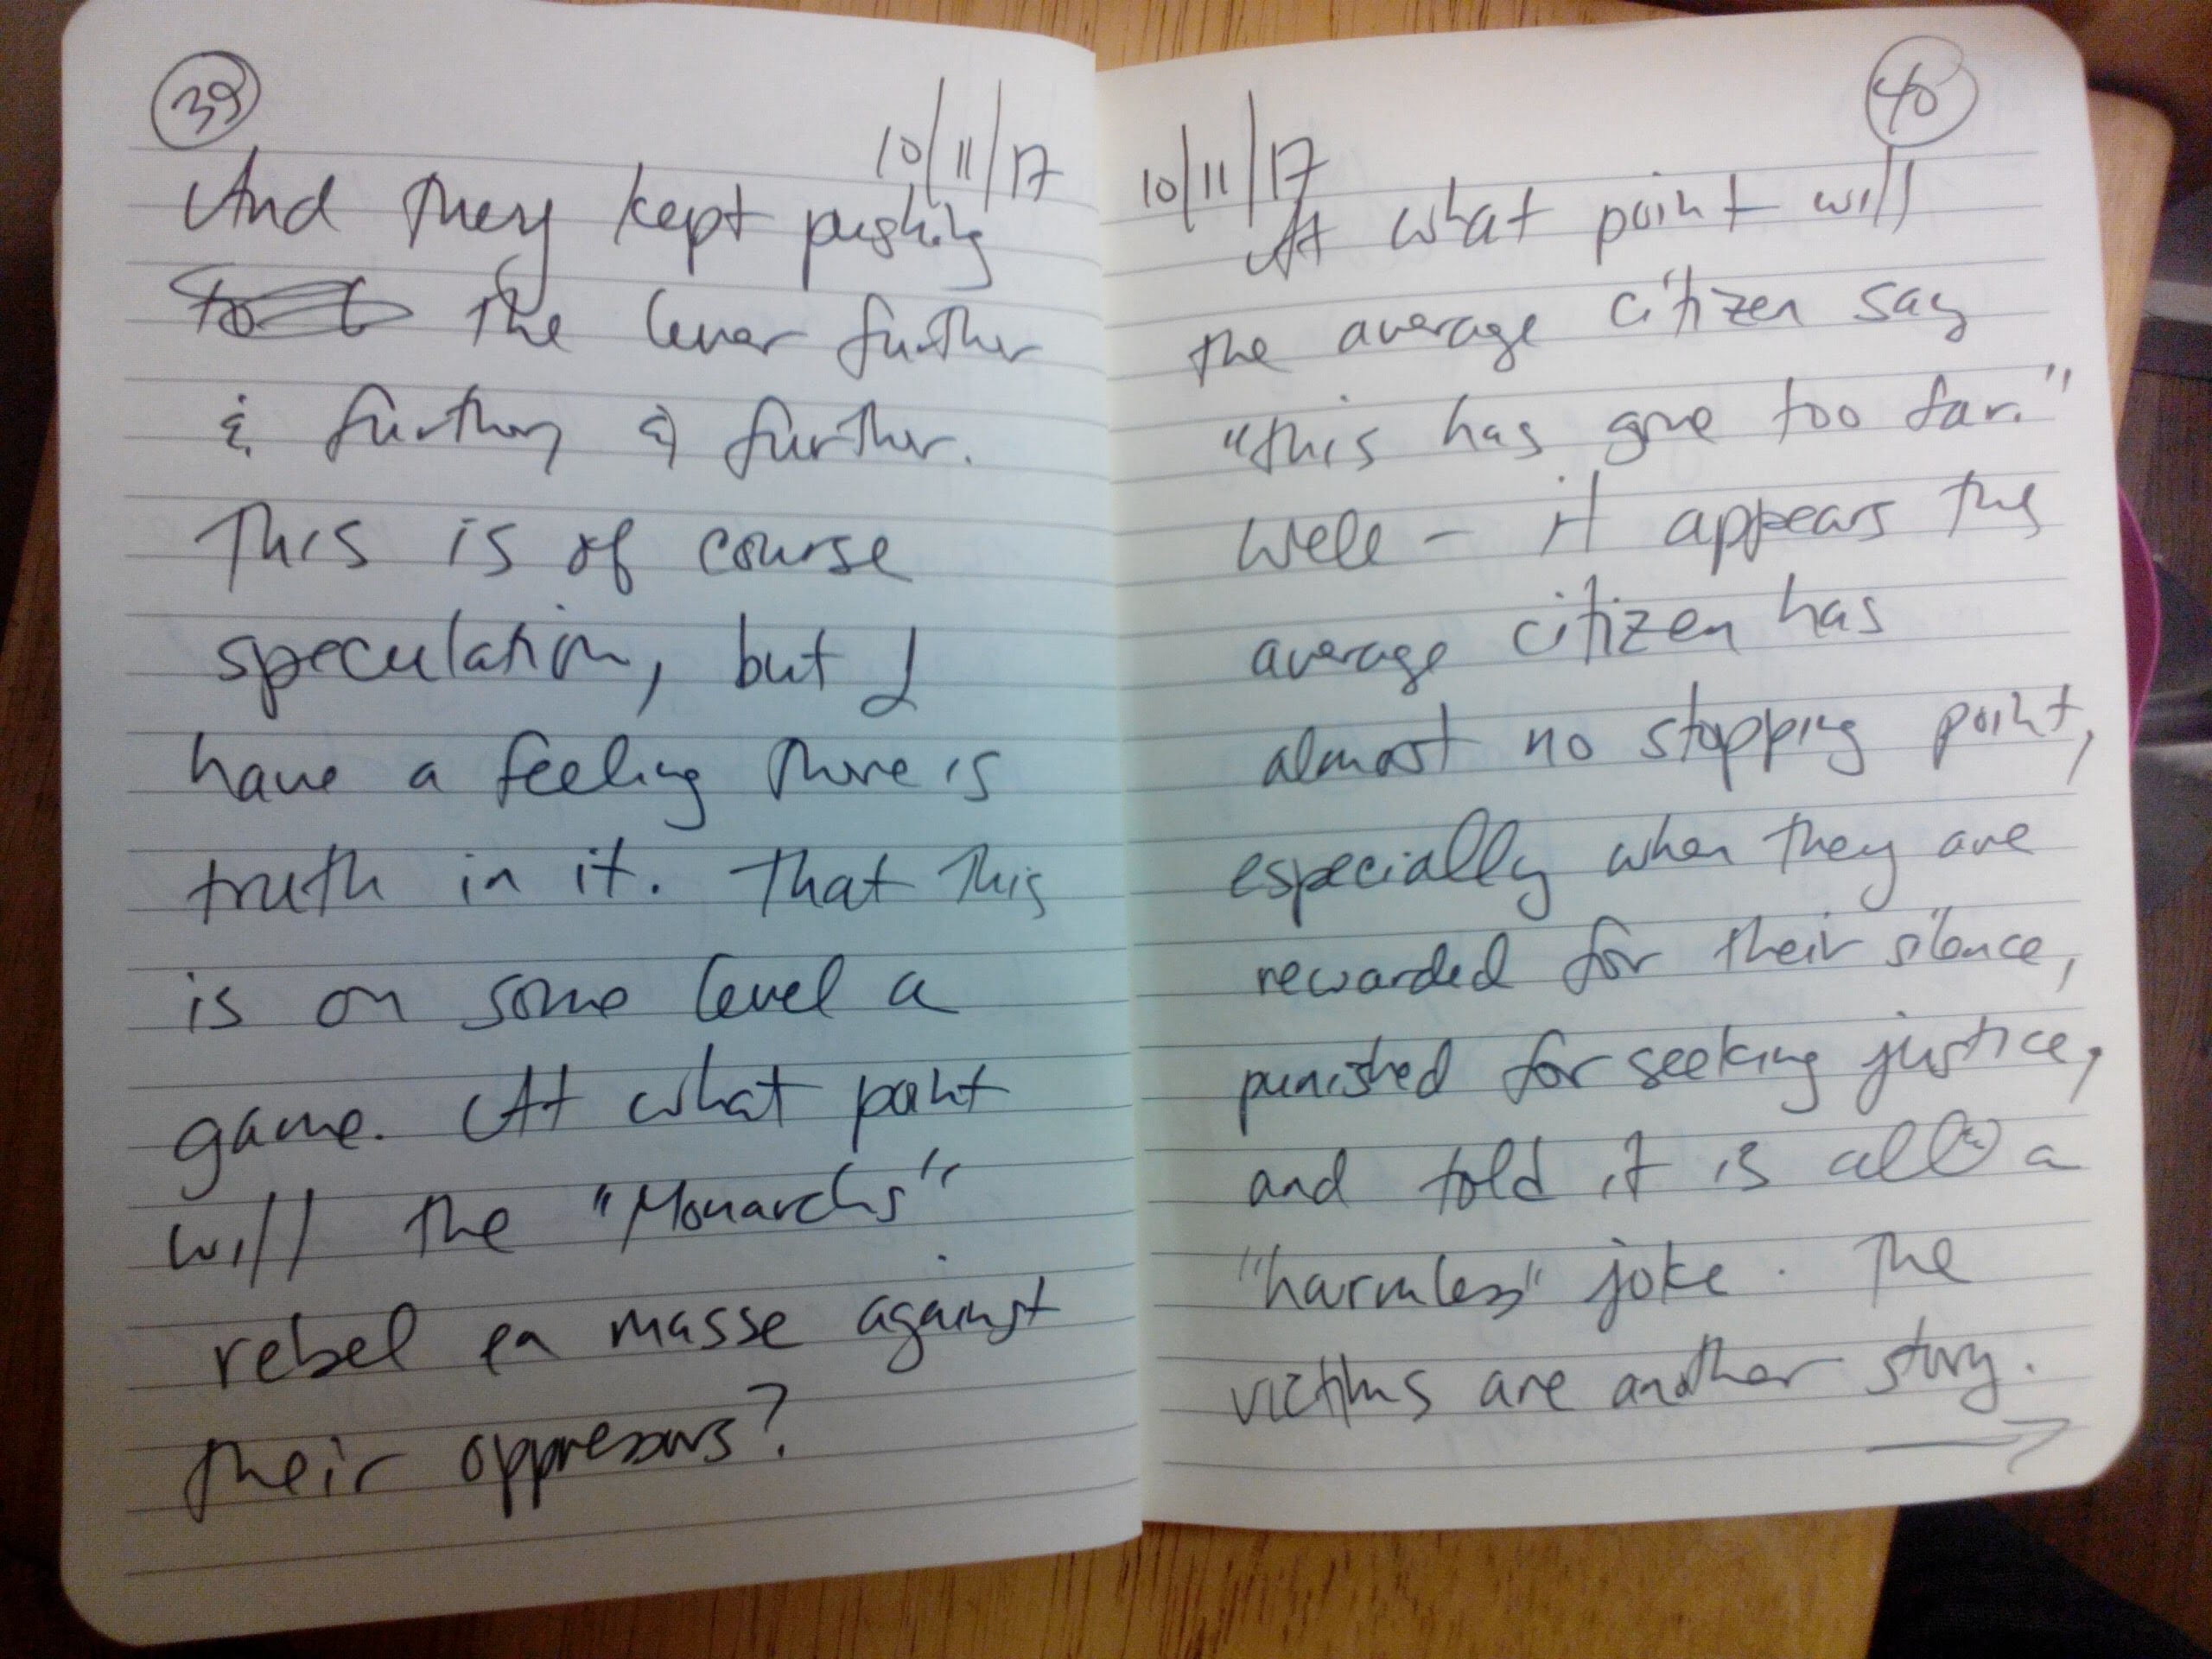 39
10/11/17
And they kept pushing
the lever further
& further & further.
This is of course
speculation, but I
have a feeling there is
truth in it. That this
is on some level a
game. At what point
will the "Monarchs"
rebel en masse against
their oppressors?
40
10/11/17
At what point will
the average citizen say
"this has gone too far."
Well – it appears the
average citizen has
almost no stopping point,
especially when they are
rewarded for their silence,
punished for seeking justice,
and told it is all a
"harmless" joke. The
victims are another story.
→